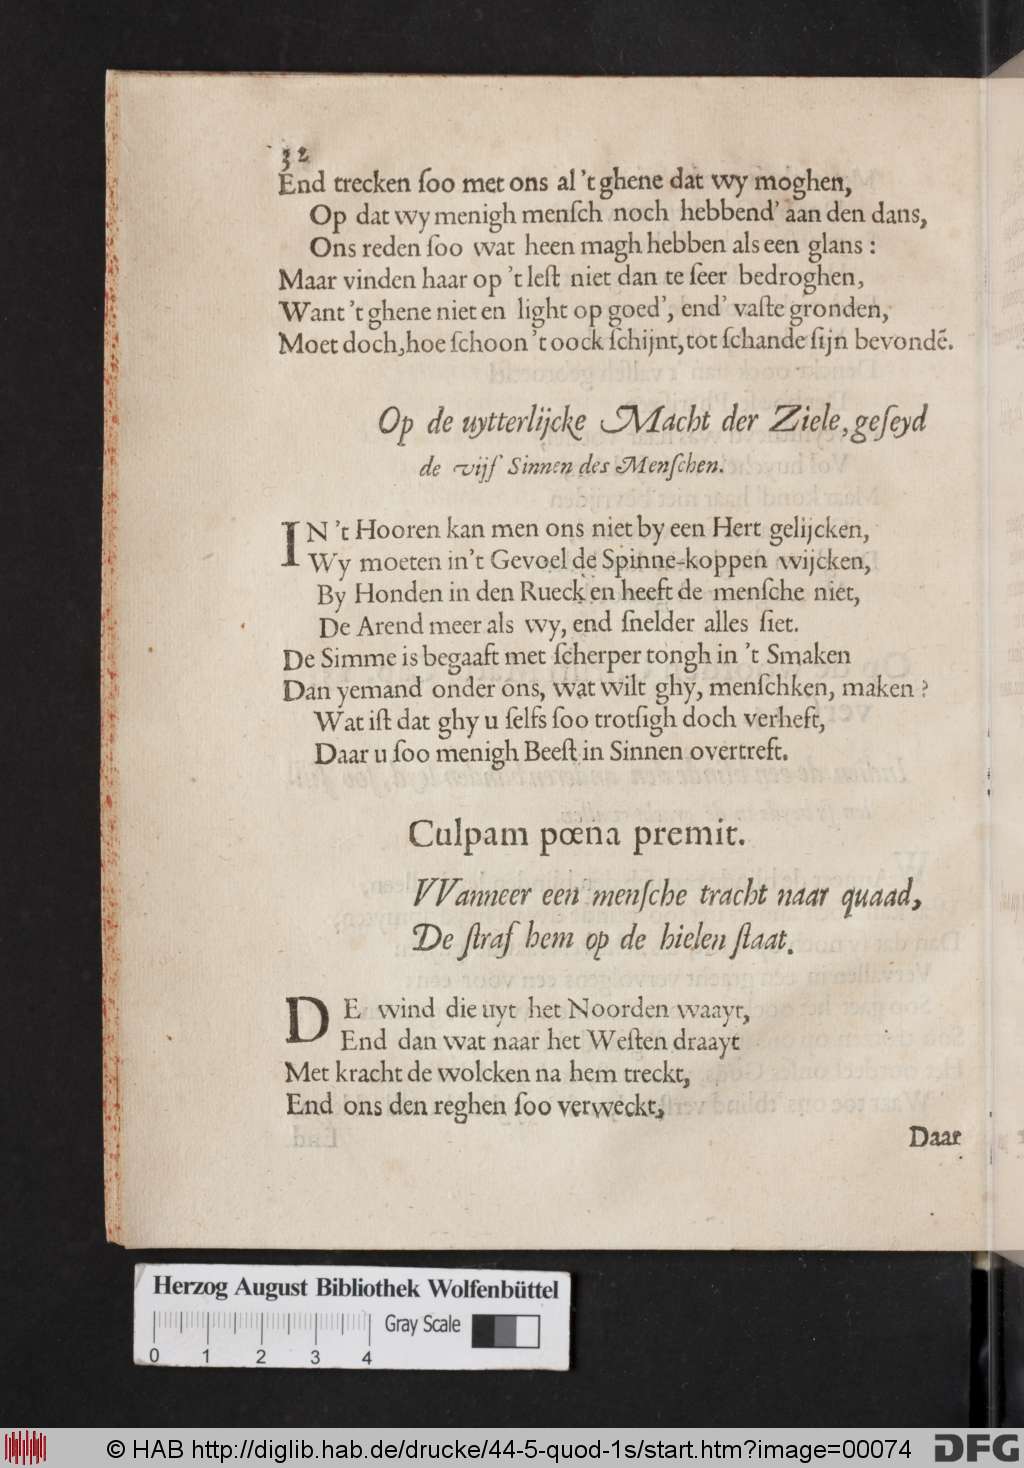 32
End trecken ſoo met ons al 't ghene dat wy moghen,
Op dat wy menigh menſch noch hebbend' aan den dans,
Ons reden ſoo wat heen magh hebben als een glans :
Maar vinden haar op 't leſt niet dan te ſeer bedroghen,
Want 't ghene niet en light op goed', end' vaſte gronden,
Moet doch, hoe ſchoon 't oock ſchijnt, tot ſchande ſijn bevondē.
Op de uytterlijcke Macht der Ziele, geſeyd
de vijf Sinnen des Menſchen.
IN 't Hooren kan men ons niet by een Hert gelijcken,
Wy moeten in't Gevoel de Spinne-koppen wijcken,
By Honden in den Rueck en heeft de menſche niet,
De Arend meer als wy, end ſnelder alles ſiet.
De Simme is begaaft met ſcherper tongh in 't Smaken
Dan yemand onder ons, wat wilt ghy, menſchken, maken ?
Wat iſt dat ghy u ſelfs ſoo trotſigh doch verheft,
Daar u ſoo menigh Beeſt in Sinnen overtreft.
Culpam pœna premit.
VVanneer een menſche tracht naar quaad,
De ſtraf hem op de hielen ſtaat.
DE wind die uyt het Noorden waayt,
End dan wat naar het Weſten draayt
Met kracht de wolcken na hem treckt,
End ons den reghen ſoo verweckt,
Daar
Herzog August Bibliothek Wolfenbüttel
Gray Scale
0 1 2 3 4
© HAB http://diglib.hab.de/drucke/44-5-quod-1s/start.htm?image=00074
DFG